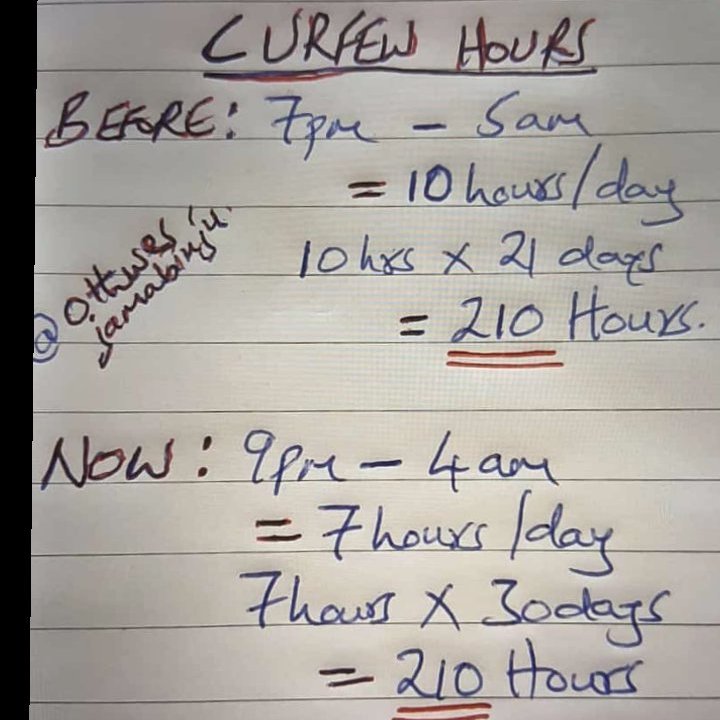 CURFEW HOURS
BEFORE: 7pm - 5am
= 10 hours/day
10 hrs x 21 days
= 210 Hours.
NOW: 9pm - 4am
= 7 hours/day
7 hours X 30 days
= 210 Hours